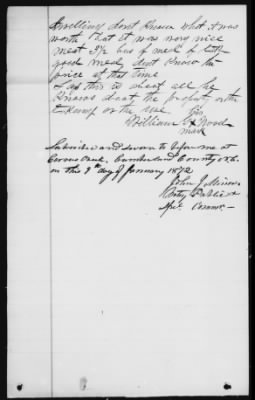 Dwelling dont Know what it was
worth But it was very nice
meat 3½ bus of meal &
good meal, dont Know the
price at that time
& as this is about all he
Knows about the property or the
his
William X Wood
mark
Subscribed and sworn to before me at
Cumberland County N.C.
on this 9th day of January 1872
John
Notary Public &
Spcl Comr